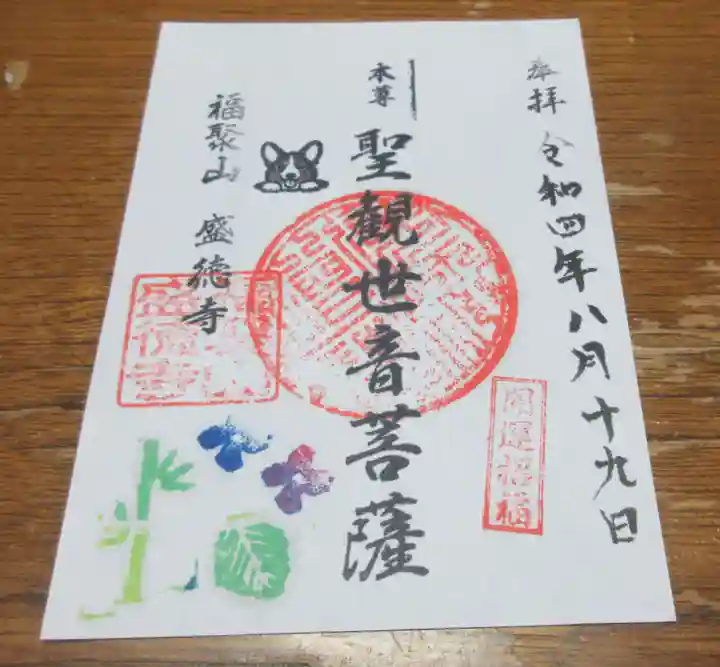 奉拝 令和四年八月十九日
開運招福
本尊
聖観世音菩薩
福聚山 盛徳寺